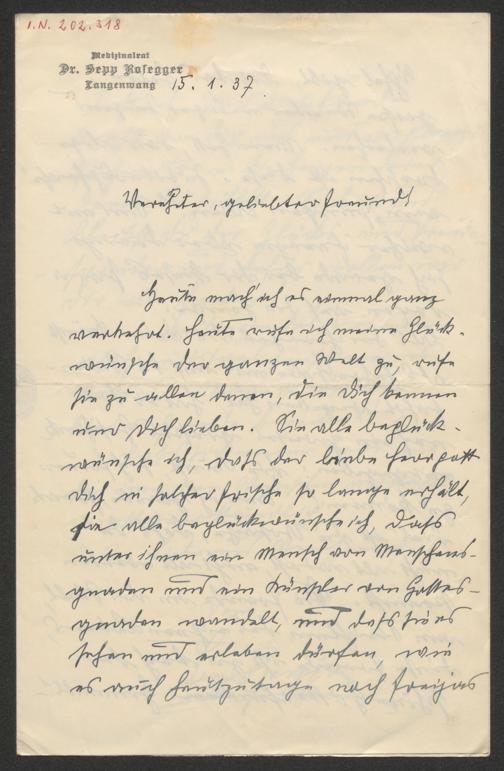 I.N. 202.318
Medizinalrat
Dr. Sepp Rosegger
Langenwang
15.1.37.
Verehrter, geliebter Freund!
Heute mach' ich es einmal ganz
verkehrt. Heute rufe ich meine Glück-
wünsche der ganzen Welt zu, rufe
sie zu allen denen, die Dich kennen
und Dich lieben. Sie alle beglück-
wünsche ich, dass der liebe Herrgott
Dich in solcher Frische so lange erhält,
sie alle beglückwünsche ich, dass
unter ihnen ein Mensch von Menschens-
gnaden und ein Künstler von Gottes-
gnaden wandelt, und dass sie es
sehen und erleben dürfen, wie
es auch heutzutage noch